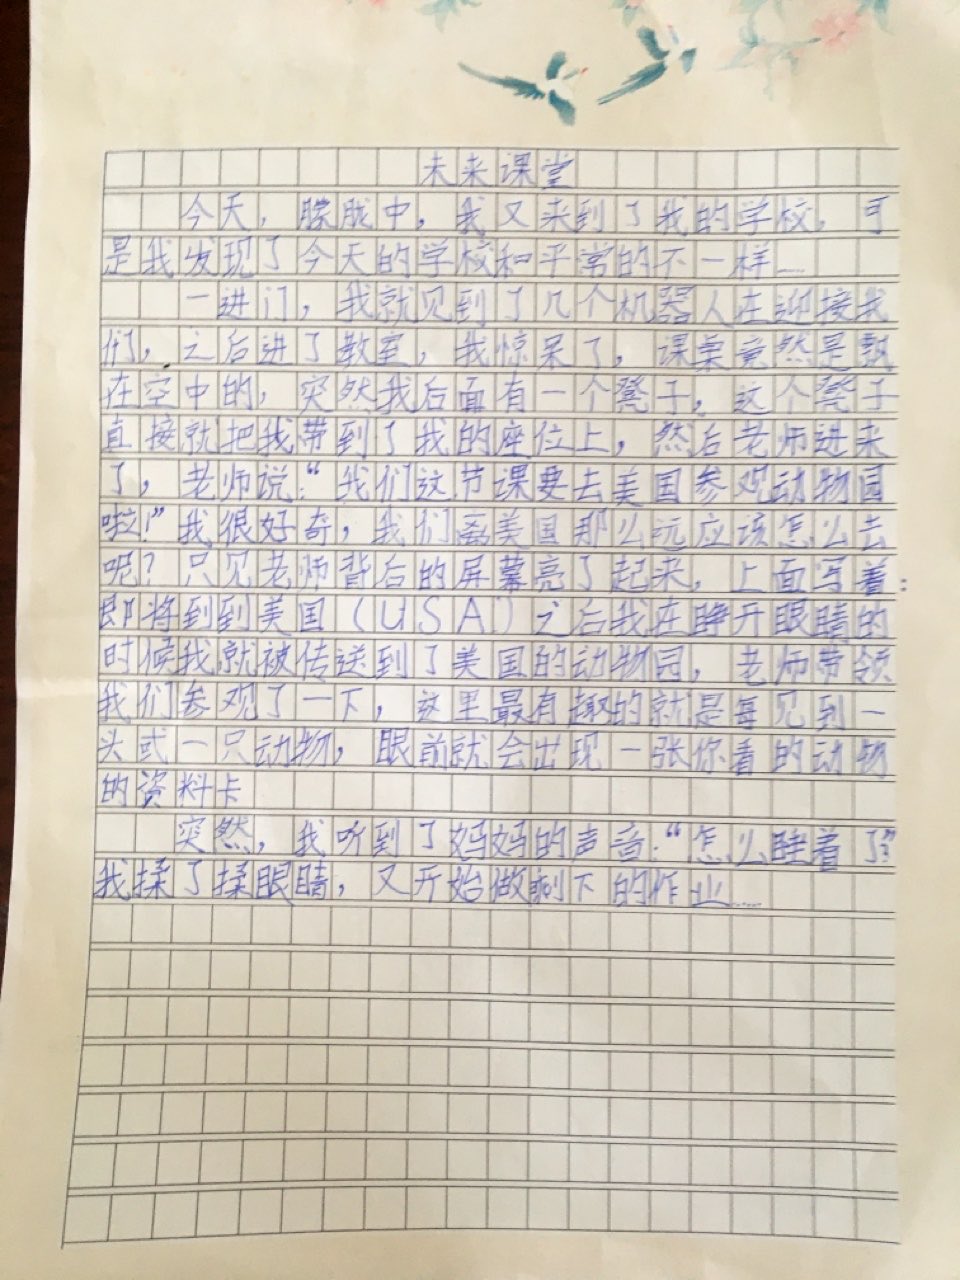 未来课堂
今天，朦胧中，我又来到了我的学校，可
是我发现了今天的学校和平常的不一样……
一进门，我就见到了几个机器人在迎接我
们，之后进了教室，我惊呆了，课桌竟然是飘
在空中的，突然我后面有一个凳子，这个凳子
直接就把我带到了我的座位上，然后老师进来
了，老师说：“我们这节课要去美国参观动物园
啦！”我很好奇，我们离美国那么远应该怎么去
呢？只见老师背后的屏幕亮了起来，上面写着：
即将到到美国（USA）之后我在睁开眼睛的
时候我就被传送到了美国的动物园，老师带领
我们参观了一下，这里最有趣的就是每见到一
头或一只动物，眼前就会出现一张你看的动物
的资料卡
突然，我听到了妈妈的声音：“怎么睡着了？”
我揉了揉眼睛，又开始做剩下的作业……